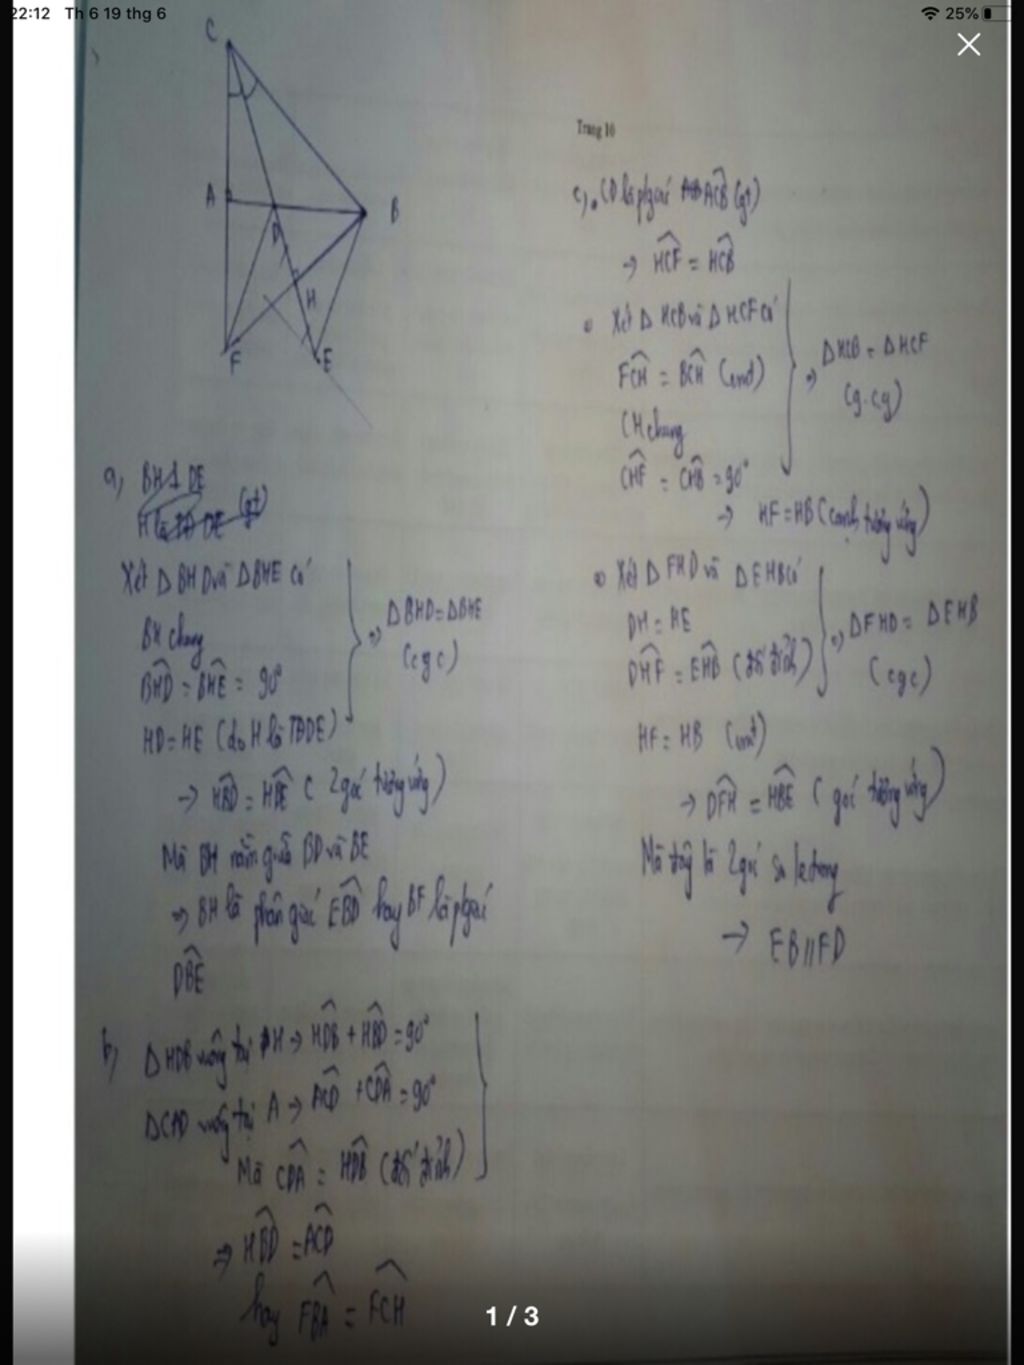 22:12 Th 6 19 thg 6
25%
C
A
B
D
H
F
E
a, BH ⊥ DE
H là TĐ DE (gt)
Xét Δ BHD và ΔBHE có
BH chung
BHD̂ = BHÊ = 90°
HD = HE (do H là TĐDE)
⇒ ΔBHD = ΔBHE
(cgc)
→ HBD̂ = HBÊ ( 2 góc tương ứng)
Mà BH nằm giữa BD và BE
⇒ BH là phân giác EBD̂ hay BF là pgiác
DBÊ
b, Δ HDB vuông tại H → HDB̂ + HBD̂ = 90°
ΔCAD vuông tại A → ACD̂ + CDÂ = 90°
Mà CDÂ = HDB̂ (đối đỉnh)
⇒ HBD̂ = ACD̂
hay FBÂ = FCĤ
Trang 10
c, . CD là pgiác ACB̂ (gt)
→ HCF̂ = HCB̂
Xét Δ HCB và Δ HCF có
FCĤ = BCĤ (cmt)
CH chung
CHF̂ = CHB̂ = 90°
⇒ ΔHCB = ΔHCF
(g.c.g)
→ HF = HB (cạnh tương ứng)
Xét Δ FHD và Δ EHB có
DH = HE
DHF̂ = EHB̂ (đối đỉnh)
HF = HB (cmt)
⇒ ΔFHD = ΔEHB
(cgc)
→ DFĤ = HBÊ ( góc tương ứng)
Mà đây là 2 góc so le trong
→ EB // FD
1 / 3